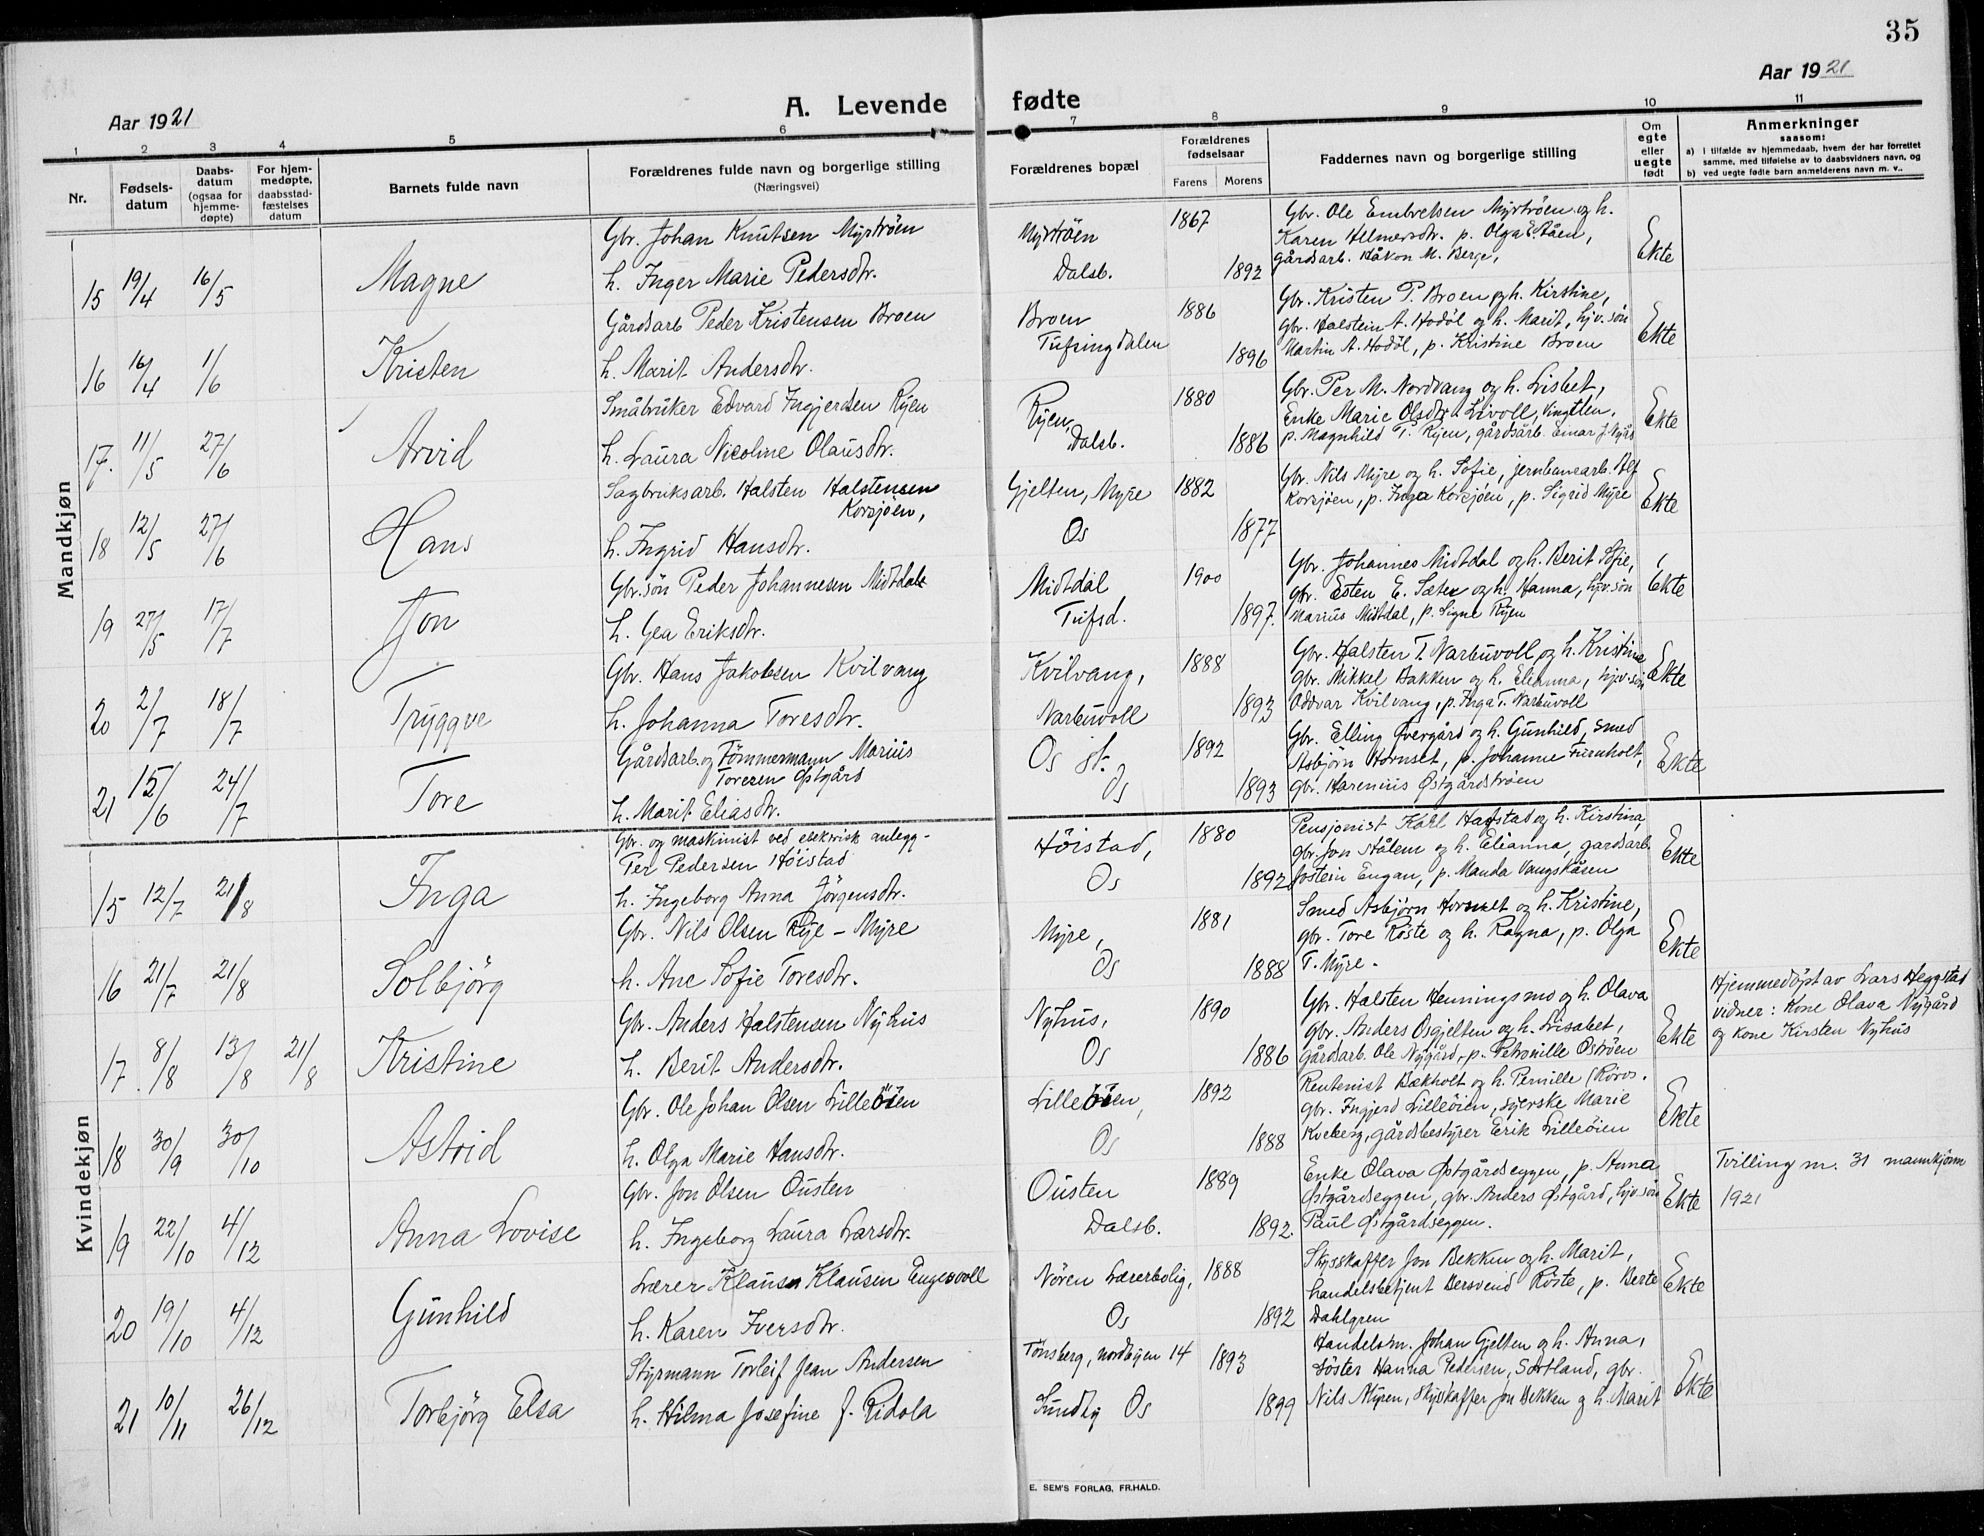 35
Aar 1921
A. Levende fødte
Aar 1921
1 2 3 4 5 6 7 8 9 10 11
Nr.
Fødsels-
datum
Daabs-
datum
(ogsaa for
hjemme-
døpte)
For hjem-
medøpte,
daabsstad-
fæstelses
datum
Barnets fulde navn
Forældrenes fulde navn og borgerlige stilling
(Næringsvei)
Forældrenes bopæl
Forældrenes
fødselsaar
Farens Morens
Faddernes navn og borgerlige stilling
Om
egte
eller
uegte
født
Anmerkninger
saasom:
a) I tilfælde av hjemmedaab, hvem der har forrettet
samme, med tilføielse av to daabsvidners navn, og
b) ved uegte fødte barn anmelderens navn m. v..
Mandkjøn
15 19/4 16/5 Magne
Gbr. Johan Knutsen Myrtrøen
h. Inger Marie Pedersdtr.
Myrtrøen
Dalsb.
1867
1892
Gbr. Ole Embretsen Myrtrøen og h.
Karen Helmersdtr. p. Olga E. Aåen,
gårdsarb. Håkon M. Berge,
Ekte
16 16/4 1/6 Kristen
Gårdsarb Peder Kristensen Broen
h. Marit Andersdtr.
Broen
Tufsingdalen
1886
1896
Gbr. Kristen P. Broen og h. Kirstine,
gbr. Halstein A. Hodøl og h. Marit, hjv. søn
Martin A. Hodøl, p. Kristine Broen
Ekte
17. 11/5 27/6 Arvid
Småbruker Edvard Ingjerdsen Ryen
h. Laura Nicoline Olausdtr.
Ryen,
Dalsb.
1880
1886
Gbr. Per M. Nordvang og h. Lisbet,
Enke Marie Olsdtr. Livoll, Vingelen.
p. Magnhild T. Ryen, gårdsarb. Einar J. Nygård
Ekte
18 12/5 27/6 Hans
Sagbruksarb. Halsten Halstensen
Korsjøen,
h. Ingrid Hansdtr.
Gjelten, Myre
Os
1882
1877
Gbr. Nils Myre og h. Sofie, jernbanearb. Alf
Korsjøen, p. Inga Korsjøen, p. Sigrid Myre
Ekte
19 27/5 17/7 Jon
Gbr. søn Peder Johannesen Midtdal
h. Gea Eriksdtr.
Midtdal
Tufsd.
1900
1897.
Gbr. Johannes Midtdal og h. Berit Sofie,
gbr. Esten E. Sæter og h. Hanna, hjv. søn
Marius Midtdal, p. Signe Ryen
Ekte
20 2/7 18/7 Tryggve
Gbr. Hans Jakobsen Kvilvang
h. Johanna Toresdtr.
Kvilvang,
Narbuvoll
1888
1893
Gbr. Halsten T. Narbuvoll og h. Kristine
gbr. Mikkel Bakken og h. Elianna, hjv. søn
Oddvar Kvilvang, p. Inga T. Narbuvoll
Ekte
21 15/6 24/7 Tore
Gårdsarb. og Tømmermann Marius
Toresen Østgård
h. Marit Eliasdtr.
Os st.
Os
1892
1893
Gbr. Elling Øvergård og h. Gunhild, smed
Asbjørn Hornset, p. Johanne Furuholt,
gbr. Harenius Østgårdstrøen
Ekte
Kvindekjøn
15 12/7 21/8 Inga
Gbr. og maskinist ved elektrisk anlegg -
Per Pedersen Høistad
h. Ingeborg Anna Jørgensdtr.
Høistad,
Os
1880
1892
Pensjonist Karl Høistad og h. Kirstina,
gbr. Jon Nålem og h. Elianna, gardsarb.
Jostein Engan, p. Manda Vangskåsen
Ekte
16 21/7 21/8 Solbjørg
Gbr. Nils Olsen Rye - Myre
h. Ane Sofie Toresdtr.
Myre,
Os
1881
1888
Smed Asbjørn Hornset og h. Kristine,
gbr. Tore Røste og h. Ragna, p. Olga
T. Myre.
Ekte
17. 8/8 13/8 21/8 Kristine
Gbr. Anders Halstensen Nyhus
h. Berit Andersdtr.
Nyhus,
Os
1890
1886
Gbr. Halsten Henningsmo og h. Olava
gbr. Anders Osgjelten og h. Lisabet,
gårdsarb. Ole Nygård, p. Petronille Ostrøen
Ekte
Hjemmedøpt av Lars Heggstad
vidner: Kone Olava Nygård
og kone Kirsten Nyhus
18 30/9 30/10 Astrid
Gbr. Ole Johan Olsen Lilleøien
h. Olga Marie Hansdtr.
Lilleøien,
Os
1892
1888
Rentenist Bækholt og h. Pernille (Røros.
gbr. Ingjerd Lilleøien, syerske Marie
Kveberg, gårdsbestyrer Erik Lilleøien
Ekte
19 22/10 4/12 Anna Lovise
Gbr. Jon Olsen Ousten
h. Ingeborg Laura Larsdtr.
Ousten
Dalsb.
1889
1892.
Enke Olava Østgårdseggen, p. Anna
Østgårdseggen, gbr. Anders Østgård, hjv. søn
Paul Østgårdseggen.
Ekte
Tvilling nr. 31 mannkjønn
1921
20 19/10 4/12 Gunhild
Lærer Klaus Klausen Engesvoll
h. Karen Iversdtr.
Nøren Lærerbolig,
Os
1888
1892
Skysskaffer Jon Bekken og h. Marit,
handelsbetjent Bersvend Røste, p. Berte
Dahlgren
Ekte
21 10/11 26/12 Torbjørg Elsa
Styrmann Torleif Jean Andersen
h. Hilma Josefine f. Ridola
Tønsberg, nordbyen 14
Sundby Os
1893
1899
Handelsm. Johan Gjelten og h. Anna,
søster Hanna Pedersen, Sortland, gbr.
Nils Myren, Skysskaffer Jon Bekken og h. Marit
Ekte
E. SEM'S FORLAG, FR.HALD.